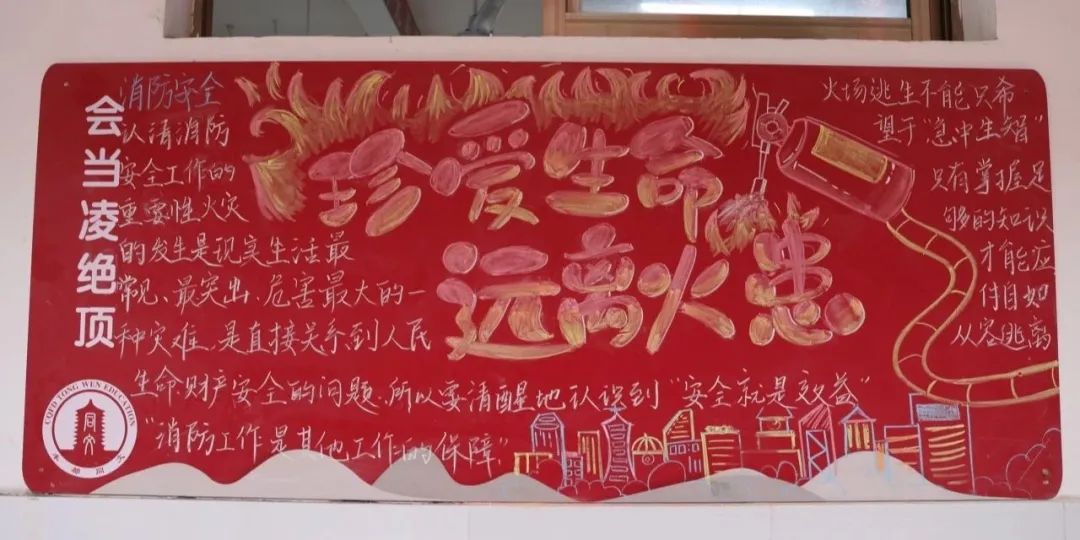 会当凌绝顶
消防安全
认清消防
安全工作的
重要性火灾
的发生是现实生活最
常见、最突出、危害最大的一
种灾难、是直接关系到人民
生命财产安全的问题、所以要清醒地认识到“安全就是效益”
“消防工作是其他工作的保障”
珍爱生命
远离火患
火场逃生不能只希
望于“急中生智”
只有掌握足
够的知识
才能应
付自如
从容逃离
TONG WEN EDUCATION
同文